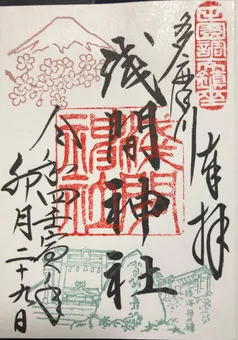 奉拝
多摩川
浅間神社
浅間神社
令和四壬寅年
卯月二十九日